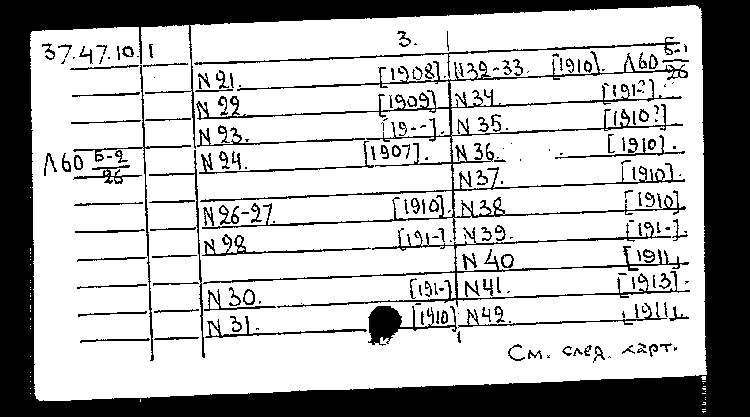 37.47.10. 1
3.
N 21. [1908].
N 22 [1909]
N 23. [19--].
Л60 Б-2/26 N 24. [1907].
N 26-27. [1910]
N 28 [191-]
N 30. [191-]
N 31. [1910]
N 32-33. [1910]. Л60 Б-1/26
N 34. [191?].
N 35. [1910?]
N 36. [1910].
N 37. [1910].
N 38 [1910]
N 39. [191-].
N 40 [1911]
N 41. [1913].
N 42. [1911].
См. след. карт.